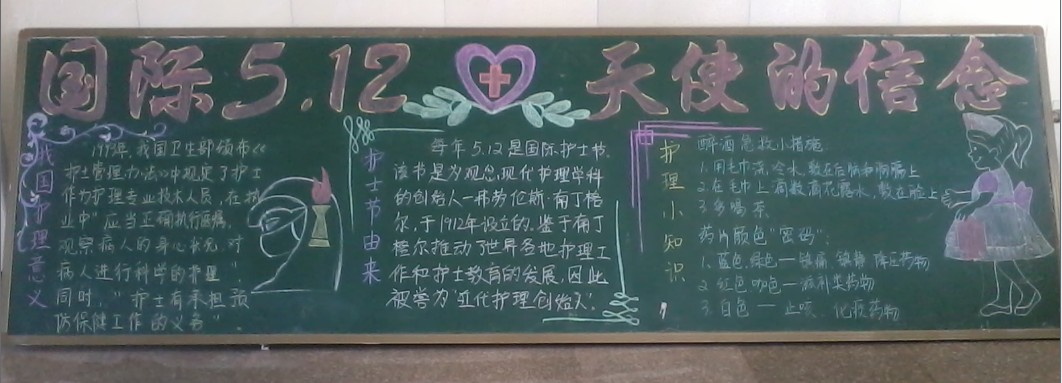 国际5.12 天使的信念
我国护理意义
1993年,我国卫生部颁布《
护士管理办法》中规定了护士
作为护理专业技术人员,在执
业中"应当正确执行医嘱,
观察病人的身心状况,对
病人进行科学的护理",
同时,"护士有承担预
防保健工作的义务"。
护士节由来
每年5.12是国际护士节,
该书是为观念,现代护理学科
的创始人—弗劳伦斯·南丁格
尔,于1912年设立的,鉴于南丁
格尔推动了世界各地护理工
作和护士教育的发展,因此
被誉为"近代护理创始人"。
护理小知识
醉酒急救小措施
1.用毛巾浸冷水,敷在后脑和胸膈上
2.在毛巾上滴数滴花露水,敷在脸上
3.多喝茶
药片颜色"密码":
1.蓝色,绿色—镇痛 镇静 降压药物
2.红色咖色—滋补类药物
3.白色—止咳、化痰药物